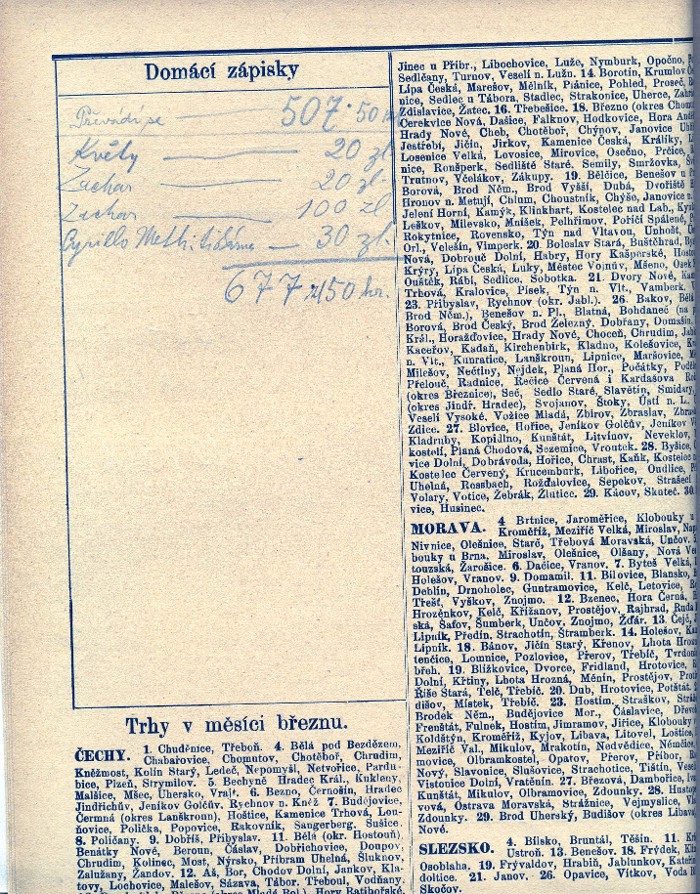 Domácí zápisky
Převádí se 507·50
Květy 20 zl
Zachar 20 zl.
Zachar 100 zl
Cyrillo Meth. 30 zl.
677 zl 50 kr.
Trhy v měsíci březnu.
ČECHY. 1. Chuděnice, Třeboň. 4. Bělá pod Bezdězem,
Chabařovice, Chomutov, Chotěboř, Chrudim,
Kněžmost, Kolín Starý, Ledeč, Nepomyšl, Netvořice, Pardu-
bice, Plzeň, Strymilov. 5. Bechyně Hradec Král., Kukleny,
Malšice, Mšec, Uhersko, Vrajt. 6. Bezno, Černošín, Hradec
Jindřichův, Jeníkov Golčův, Rychnov n. Kněž. 7. Budějovice,
Čermná (okres Lanškroun), Hoštice, Kamenice Trhová, Lou-
ňovice, Polička, Popovice, Rakovník, Sangerberg, Sušice.
8. Poličany. 9. Dobříš, Přibyslav. 11. Bělá (okr. Hostouň),
Benátky Nové, Beroun, Čáslav, Dobřichovice, Doupov,
Chrudim, Kolinec, Most, Nýrsko, Příbram Uhelná, Šluknov,
Zalužany, Žandov. 12. Aš, Bor, Chodov Dolní, Jankov, Kla-
tovy, Lochovice, Malešov, Sázava, Tábor, Třeboul, Vodňany.
Jinec u Příbr., Libochovice, Luže, Nymburk, Opočno,
Sedlčany, Turnov, Veselí n. Lužn. 14. Borotín, Krumlov
Lípa Česká, Marešov, Mělník, Ptánice, Pohled, Proseč,
nice, Sedlec u Tábora, Stadlec, Strakonice, Uherce,
Zdislavice, Žatec. 16. Třebešice. 18. Březno (okres
Cerekvice Nová, Dašice, Falknov, Hodkovice, Hora
Hrady Nové, Cheb, Chotěboř, Chýnov, Janovice
Jestřebí, Jičín, Jirkov, Kamenice Česká, Králíky,
Losenice Velká, Lovosice, Mirovice, Osečno, Prčice,
nice, Ronšperk, Sedliště Staré, Semily, Smržovka,
Trutnov, Včelákov, Zákupy. 19. Bělčice, Benešov u
Borová, Brod Něm., Brod Vyšší, Dubá, Dvořiště
Hronov n. Metují, Chlum, Choustník, Chýše, Janovice
Jelení Horní, Kamýk, Klinkhart, Kostelec nad Lab.,
Leškov, Milevsko, Mníšek, Pelhřimov, Poříčí Spálené,
Rokytnice, Rovensko, Týn nad Vltavou, Unhošť,
Orl., Velešín, Vimperk. 20. Boleslav Stará, Buštěhrad,
Nová, Dobrouč Dolní, Habry, Hory Kašperské,
Krýry, Lípa Česká, Luky, Městec Vojnův, Mšeno,
Ouštěk, Rábí, Sedlice, Sobotka. 21. Dvory Nové,
Trhová, Kralovice, Písek, Týn n. Vlt., Vamberk.
23. Přibyslav, Rychnov (okr. Jabl.). 26. Bakov,
Brod Něm.), Benešov n. Pl., Blatná, Bohdaneč
Borová, Brod Český, Brod Železný, Dobřany,
Král., Horažďovice, Hrady Nové, Choceň, Chrudim,
Kaceřov, Kadaň, Kirchenbirk, Kladno, Kolešovice,
n. Vlt., Kunratice, Lanškroun, Lipnice, Maršovice,
Milešov, Nečtiny, Nejdek, Planá Hor., Počátky,
Přelouč, Radnice, Řečice Červená i Kardašova
(okres Březnice), Seč, Sedlo Staré, Slavětín, Smidary,
(okres Jindř. Hradec), Svojanov, Štoky, Ústí n. L.,
Veselí Vysoké, Vožice Mladá, Zbirov, Zbraslav,
Zdice. 27. Blovice, Hořice, Jeníkov Golčův, Jeníkov
Kladruby, Kopidlno, Kunštát, Litvínov, Neveklov,
kostelí, Planá Chodová, Sezemice, Vroutek. 28. Byšice,
vice Dolní, Dobrávoda, Hořice, Chrast, Kaňk, Kostelec
Kostelec Červený, Krucemburk, Libořice, Oudlice,
Uhelná, Rossbach, Rožďalovice, Sepekov, Strašecí
Volary, Votice, Žebrák, Žlutice. 29. Kácov, Skuteč. 30.
vice, Husinec.
MORAVA. 4 Brtnice, Jaroměřice, Klobouky
Kroměříž, Meziříč Velká, Miroslav,
Nivnice, Olešnice, Starč, Třebová Moravská, Unčov.
bouky u Brna, Miroslav, Olešnice, Olšany, Nová
touzská, Žarošice. 6. Dačice, Vranov. 7. Byteš Velká,
Holešov, Vranov. 9. Domamil. 11. Bílovice, Blansko,
Deblín, Drnholec, Guntramovice, Kelč, Letovice,
Třešť, Vyškov, Znojmo. 12. Bzenec, Hora Černá,
Hrozénkov, Kelč, Křižanov, Prostějov, Rajhrad,
ská, Šafov, Šumberk, Unčov, Znojmo, Žďár. 13.
Lipník, Předín, Strachotín, Štramberk. 14. Holešov,
Lipník. 18. Bánov, Jičín Starý, Křenov, Lhota
tenčice, Lomnice, Pozlovice, Přerov, Třebíč,
břeh. 19. Blížkovice, Dvorce, Fridland, Hrotovice,
Dolní, Křtiny, Lhota Hrozná, Měnín, Prostějov,
Říše Stará, Telč, Třebíč. 20. Dub, Hrotovice,
dišov, Místek, Třebíč. 23. Hostim, Straškov,
Brodek Něm., Budějovice Mor., Čáslavice,
Frenštát, Fulnek, Hostim, Jimramov, Jiřice, Klobouky
Koldštýn, Kroměříž, Kyjov, Libava, Litovel,
Meziříč Val., Mikulov, Mrakotín, Nadvědice,
movice, Olbramkostel, Opatov, Přerov, Příbor,
Nový, Slavonice, Slušovice, Strachotice, Tištín,
Vistonice Dolní, Vratěnín. 27. Březová, Dambořice,
Kunštát, Mikulov, Olbramovice, Zdounky. 28.
vová, Ostrava Moravská, Strážnice, Vejmyslice,
Zdounky. 29. Brod Uherský, Budišov (okres
Nové.
SLEZSKO. 4. Bílsko, Bruntál, Těšín. 11.
Ustroň. 13. Benešov. 18. Frýdek,
Osoblaha. 19. Frývaldov, Hrabíň, Jablunkov,
doltice. 21. Janov. 26. Opavice, Vítkov,
Skočov.